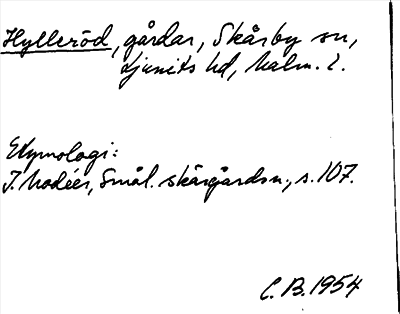 Hylleröd, gårdar, Skårby sn,
Ljunits hd, Malm. l.
Etymologi:
I. Modéer, Smål. skärgårdsn., s. 107.
C. B. 1954